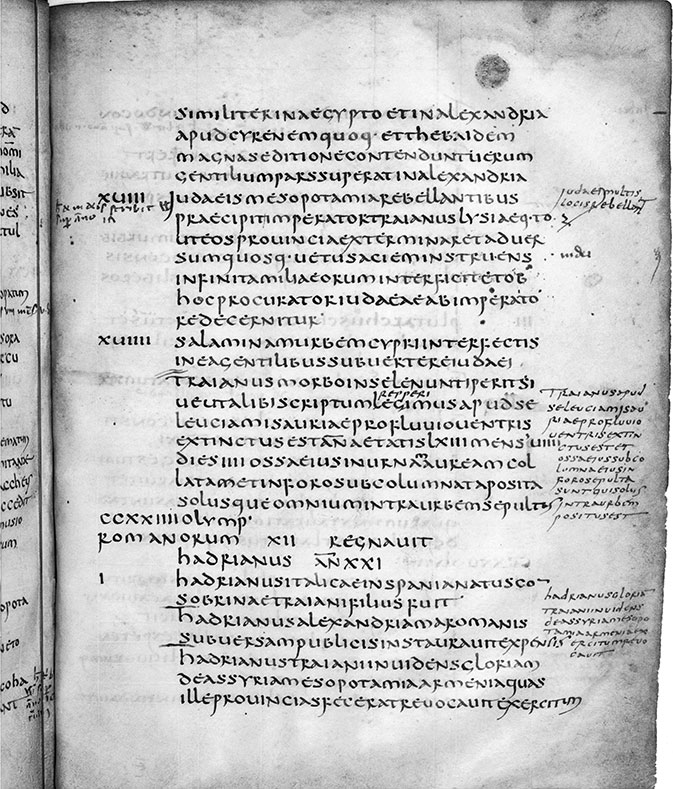 SIMILITER IN AEGYPTO ET IN ALEXANDRIA
APUD CYRENEM QUOQ· ET THEBAIDEM
MAGNA SEDITIONE CONTENDUNT UERUM
GENTILIUM PARS SUPERAT IN ALEXANDRIA
XUIII IUDAEIS MESOPOTAMIAE REBELLANTIBUS
PRAECIPIT IMPERATOR TRAIANUS LYSIAE Q·TO
UT EOS PROVINCIA EXTERMINARET ADUER
SUM QUOS Q·UETUS ACIEM INSTRUENS
INFINITA MILIA EORUM INTERFICIT ET OB
HOC PROCURATOR IUDAEAE AB IMPERATO
RE DECERNITUR
XUIIII SALAMINAM URBEM CYPRI INTERFECTIS
IN EA GENTILIBUS SUBUERTERE IUDAEI
TRAIANUS MORBO IN SELENUNTI PERIT SI
UE UT ALIBI SCRIPTUM REPPERI LEGIMUS APUD SE
LEUCIAM ISAURIAE PROFLUUIO UENTRIS
EXTINCTUS EST ANN AETATIS LXIII MENS UIIII
DIE S IIII OSSA EIUS IN URNAM AUREAM COL
LATA MET IN FORO SUB COLUMNATA POSITA
SOLUSQUE OMNIUM INTRA URBEM SEPULTUS
CCXXIIII OLYMP·
ROMANORUM XII REGNAUIT
HADRIANUS ANN XXI
I HADRIANUS ITALICAE IN SPANIA NATUS CO
SOBRINAE TRAIANI FILIUS FUIT
HADRIANUS ALEXANDRIAM A ROMANIS
SUBUERSAM PUBLICIS INSTAURAUIT EXPENSIS
HADRIANUS TRAIANI INUIDENS GLORIAM
DE ASSYRIA MESOPOTAMIA ARMENIA QUAS
ILLE PROVINCIAS FECERAT REUOCAUIT EXERCITUM
IUDAEI MULTIS
LOCIS REBELLAT
TRAIANUS APUD
SELEUCIAM ISAU
RIAE PROFLUUIO
UENTRIS EXTIN
CTUS EST ET
OSSA EIUS SUB CO
LUMNA EIUS IN
FORO SEPULTA
SUNT QUI SOLUS
INTRA URBEM
POSITUS EST
HADRIANUS GLORIAE
TRAIANI INUIDENS
DE ASSYRIA MESOPO
TAMIA ARMENIA
EXERCITUM REUO
CAUIT